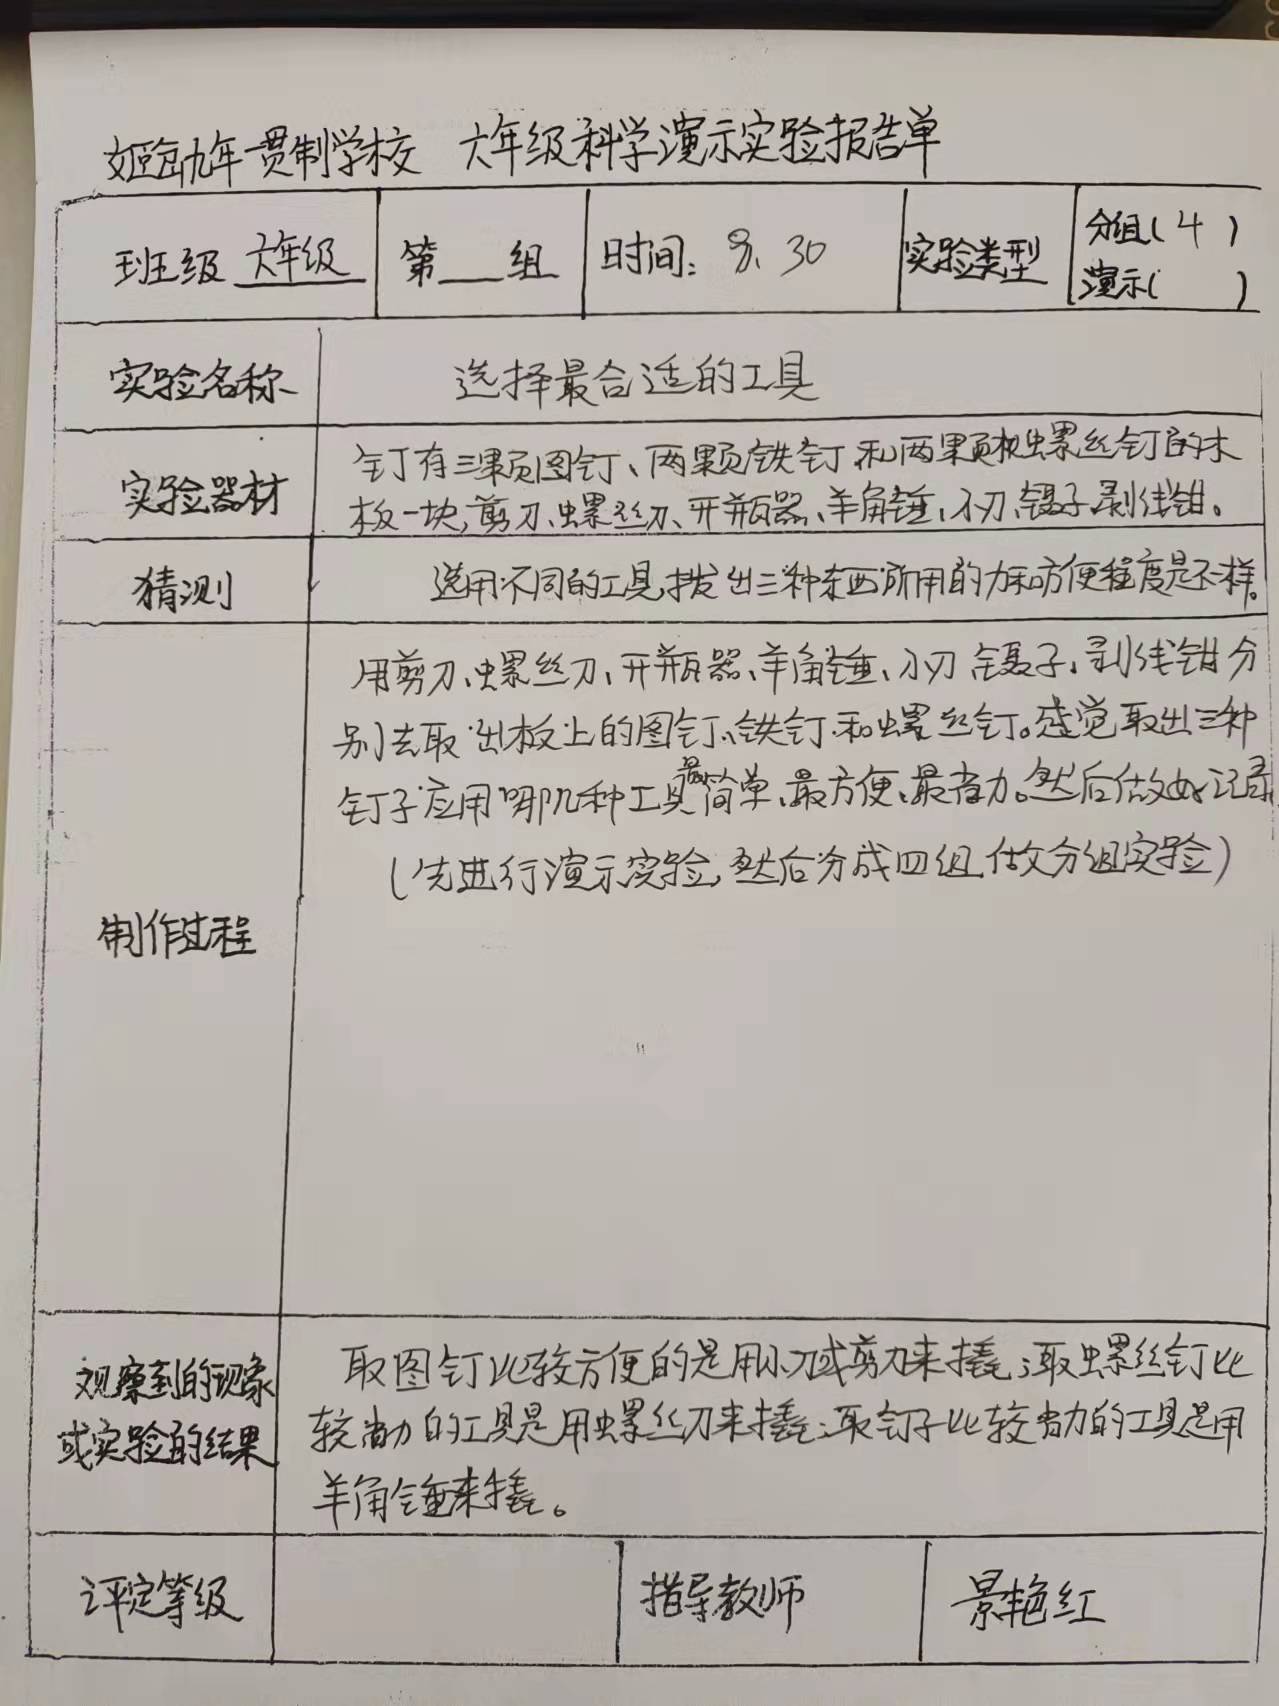 九年一贯制学校 六年级科学演示实验报告单
班级 六年级 第 组 时间: 8.30 实验类型 分组(4)
演示( )
实验名称 选择最合适的工具
实验器材 钉有三颗图钉、两颗铁钉和两颗枚螺丝钉的木
板一块,剪刀、螺丝刀、开瓶器、羊角锤、小刀、镊子、剥线钳。
猜测 选用不同的工具,拔出三种东西所用的力和方便程度是不一样。
制作过程 用剪刀、螺丝刀、开瓶器、羊角锤、小刀、镊子、剥线钳分
别去取出板上的图钉、铁钉和螺丝钉。感觉取出三种
钉子应用哪几种工具最简单、最方便、最省力。然后做好记录
(先进行演示实验,然后分成四组做分组实验)
观察到的现象
或实验的结果
取图钉比较方便的是用小刀或剪刀来撬;取螺丝钉比
较省力的工具是用螺丝刀来撬;取钉子比较省力的工具是用
羊角锤来撬。
评定等级 指导教师 景艳红